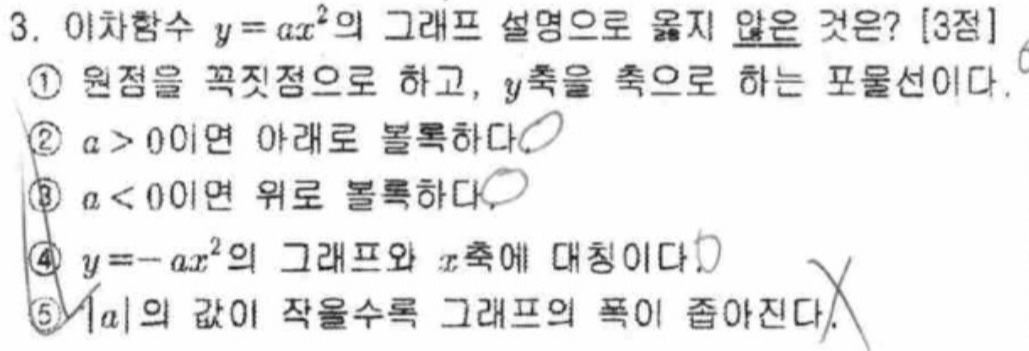 3. 이차함수 y=ax²의 그래프 설명으로 옳지 않은 것은? [3점]
① 원점을 꼭짓점으로 하고, y축을 축으로 하는 포물선이다.
② a>0이면 아래로 볼록하다.
③ a<0이면 위로 볼록하다.
④ y=-ax²의 그래프와 x축에 대칭이다.
⑤ |a|의 값이 작을수록 그래프의 폭이 좁아진다.